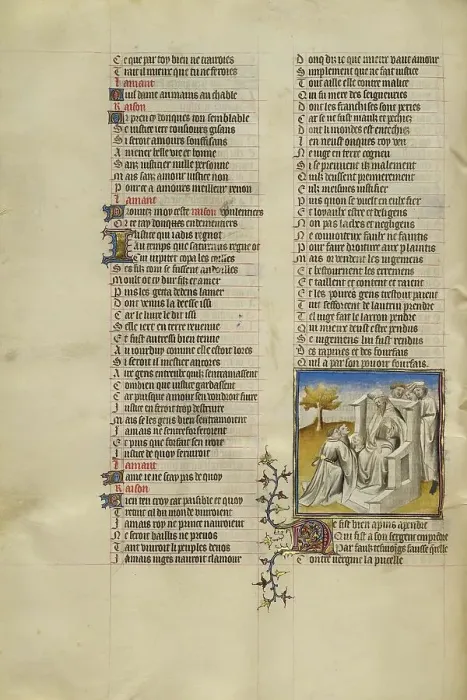 Ce que par toy bien ne trairoies
Trait il mieux que tu ne feroies
lamant
Raison
Se iustice iert tousiours gisans
Si seroit amours souffisans
A mener belle vie et bonne
Sanz iustice nulle personne
Mais sanz amour iustice non
Pour ce a amours meilleur renon
lamant
Prouuez moy ceste raison voulentiers
Or te tay donques endementiers
Iustice qui iadis regnoit
Au temps que saturnus regne ot
Cui iupiter copa les
Ses filz com se fussent
Moult ot cy dur filz et amer
Puis les geta dedens la mer
Dont venus la deesse issi
Car le liure le dit issi
Selle iert en terre reuenue
Et fust autressi bien tenue
Au iourduy comme elle estoit lores
Si seroit il mestier encores
Aux gens entreulz quilz sentramassent
Combien que iustice gardassent
Car puisque amour sen voudroit fuire
Iustice en feroit trop destruire
Mais se les gens bien sentramoient
Iamais ne sentreforferoient
Et puis que forfait sen iroit
Iustice de quoy seruiroit
lamant
Dame ie ne scay pas de quoy
Raison
Bien ten croy car paisible et quoy
Trestuit cil du monde viuroient
Iamais roy ne prince nauroient
Ne seroit baillis ne preuos
Tant viuroit li peuples
Iamais iuges nauroit clamour
Donq di ie que mieux vaut amour
Simplement que ne fait iustice
Tout aille elle contre malice
Qui fu mere des seigneuries
Dont les franchises sont peries
Car se ne fust maulx et pechiez
Dont li mondes est entechiez
Len neust onques roy veu
Ne iuge en terre cogneu
Si se preuuent ilz malement
Quilz deussent premierement
Eulz meismes iustifier
Puis quon se vuelt en eulz fier
Et loyaulx estre et deligens
Non pas lasches et negligens
Ne conuoiteux faulx ne faintis
Pour faire droiture aux plaintis
Mais or vendent les iugemens
Et bestournent les erremens
Et taillent et content et raient
Et les poures gens trestout paient
Tuit sefforcent de lautrui prendre
Tel iuge fait le larron pendre
Qui mieux deust estre pendus
Se iugemens lui fust rendus
Des rapines et des
Quil a par son pouoir
Ne fist bien apius apendre
Qui fist a son sergent emprendre
Par faulx tesmoigs fausse querelle
Contre vergine la pucelle